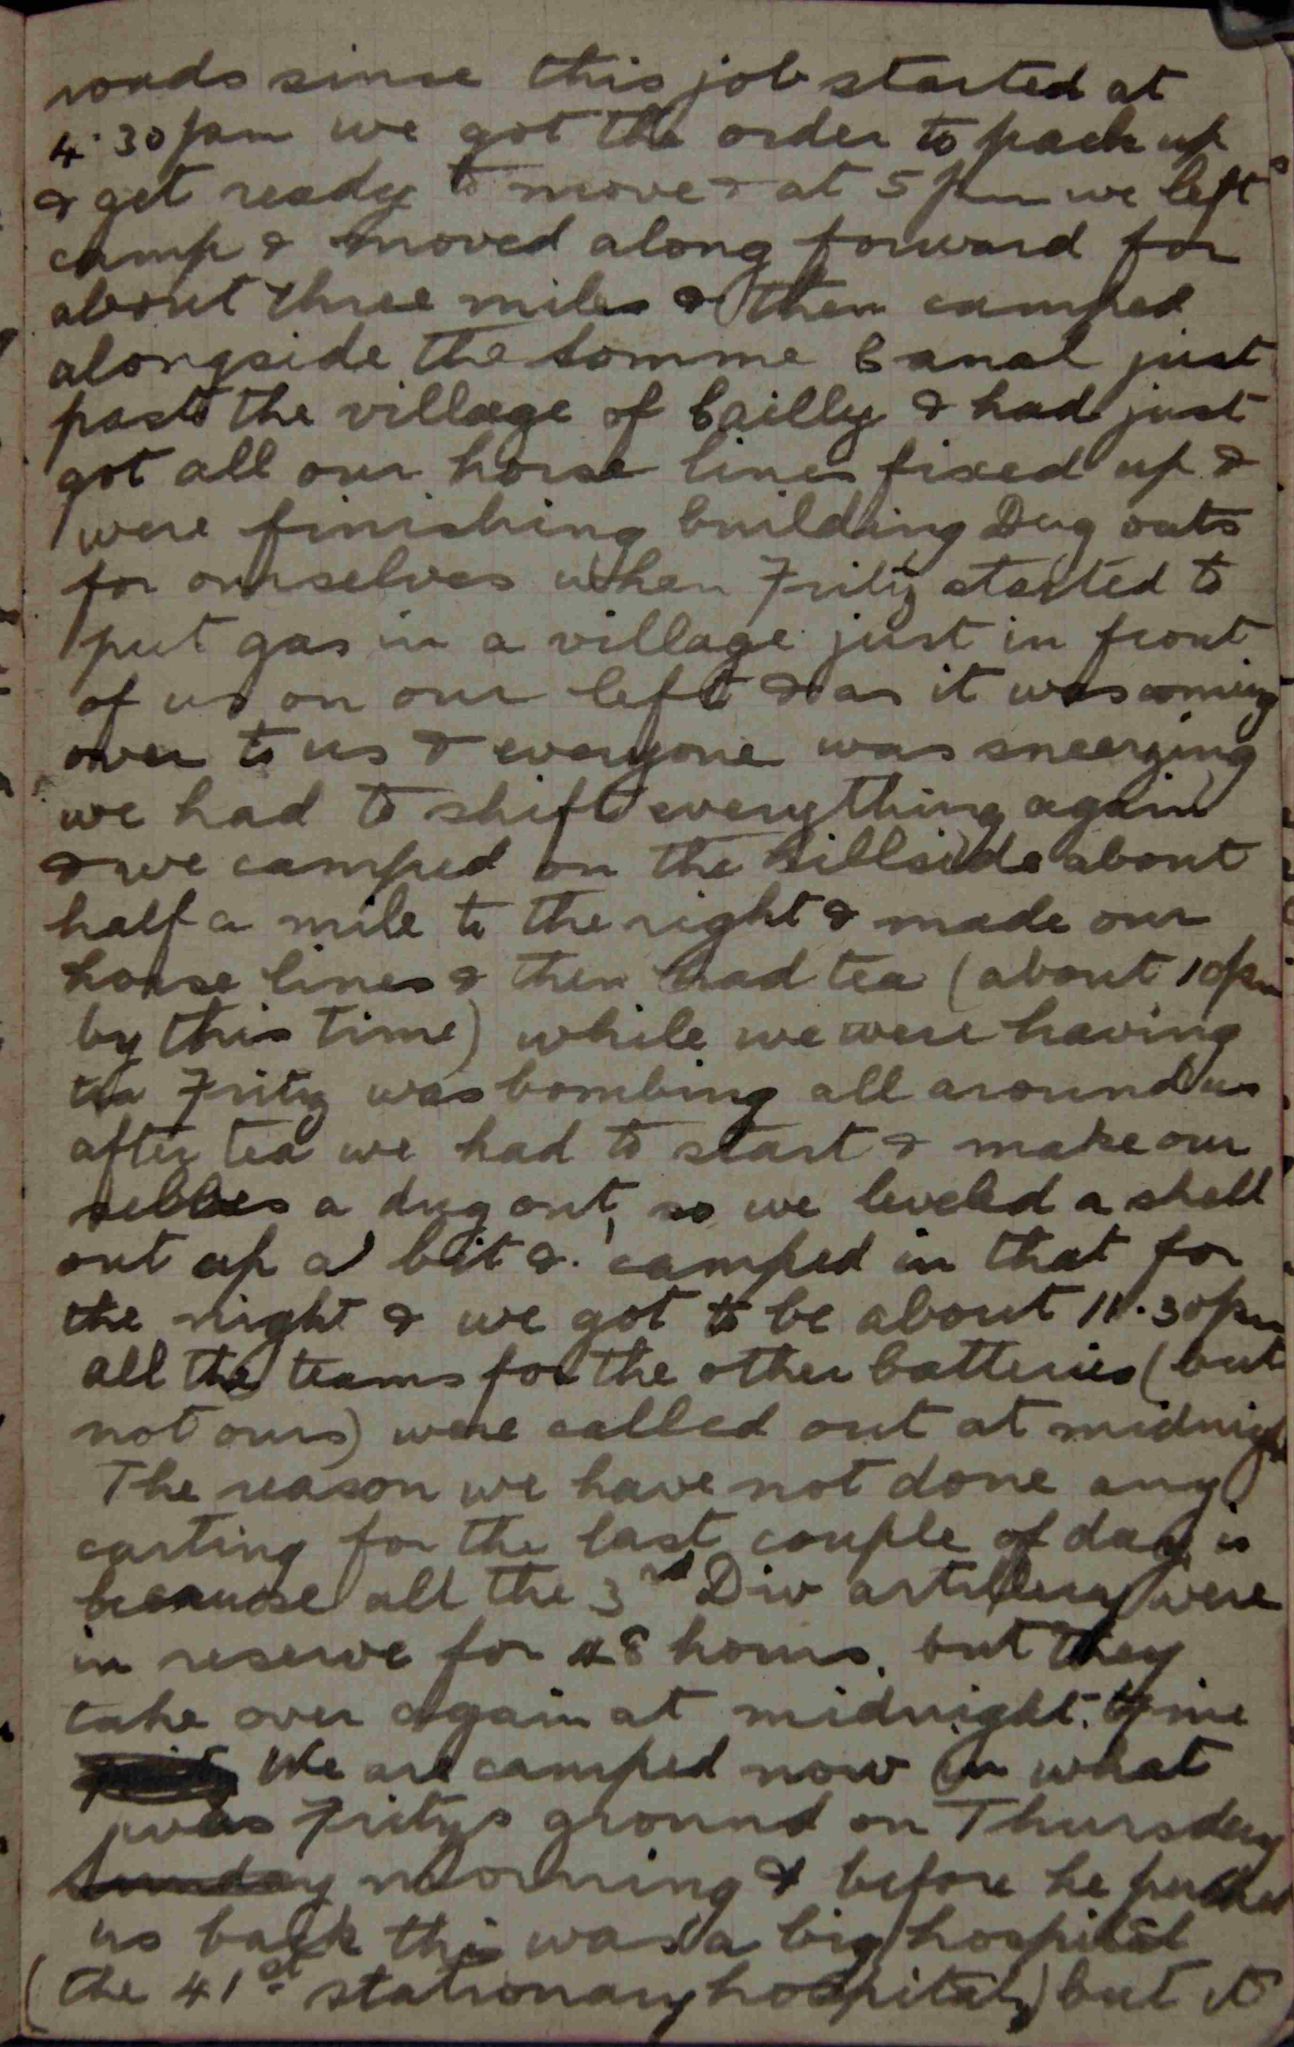 roads since this job started at
4.30 pm we got the order to pack up
& get ready to move & at 5 pm we left
camp & moved along forward for
about three miles & then camped
alongside the Somme Canal just
past the village of Cailly & had just
got all our horse lines fixed up &
were finishing building Dug outs
for ourselves when Fritz started to
put gas in a village just in front
of us on our left & as it was coming
over to us & everyone was sneezing
we had to shift everything again
& we camped on the hillside about
half a mile to the right & made our
horse lines & then had tea (about 10pm
by this time) while we were having
tea Fritz was bombing all around us
after tea we had to start & make our
selves a dug out, so we leveled a shell
out up a bit & camped in that for
the night & we got to be about 11.30pm
all the teams for the other batteries (but
not ours) were called out at midnight
The reason we have not done any
carting for the last couple of days is
because all the 3rd Div artillery were
in reserve for 48 hours. but they
take over again at midnight. time
We are camped now in what
was Fritys ground on Thursday
Sunday morning & before he pushed
us back this was a big hospital
(the 41st stationary hospital) but it